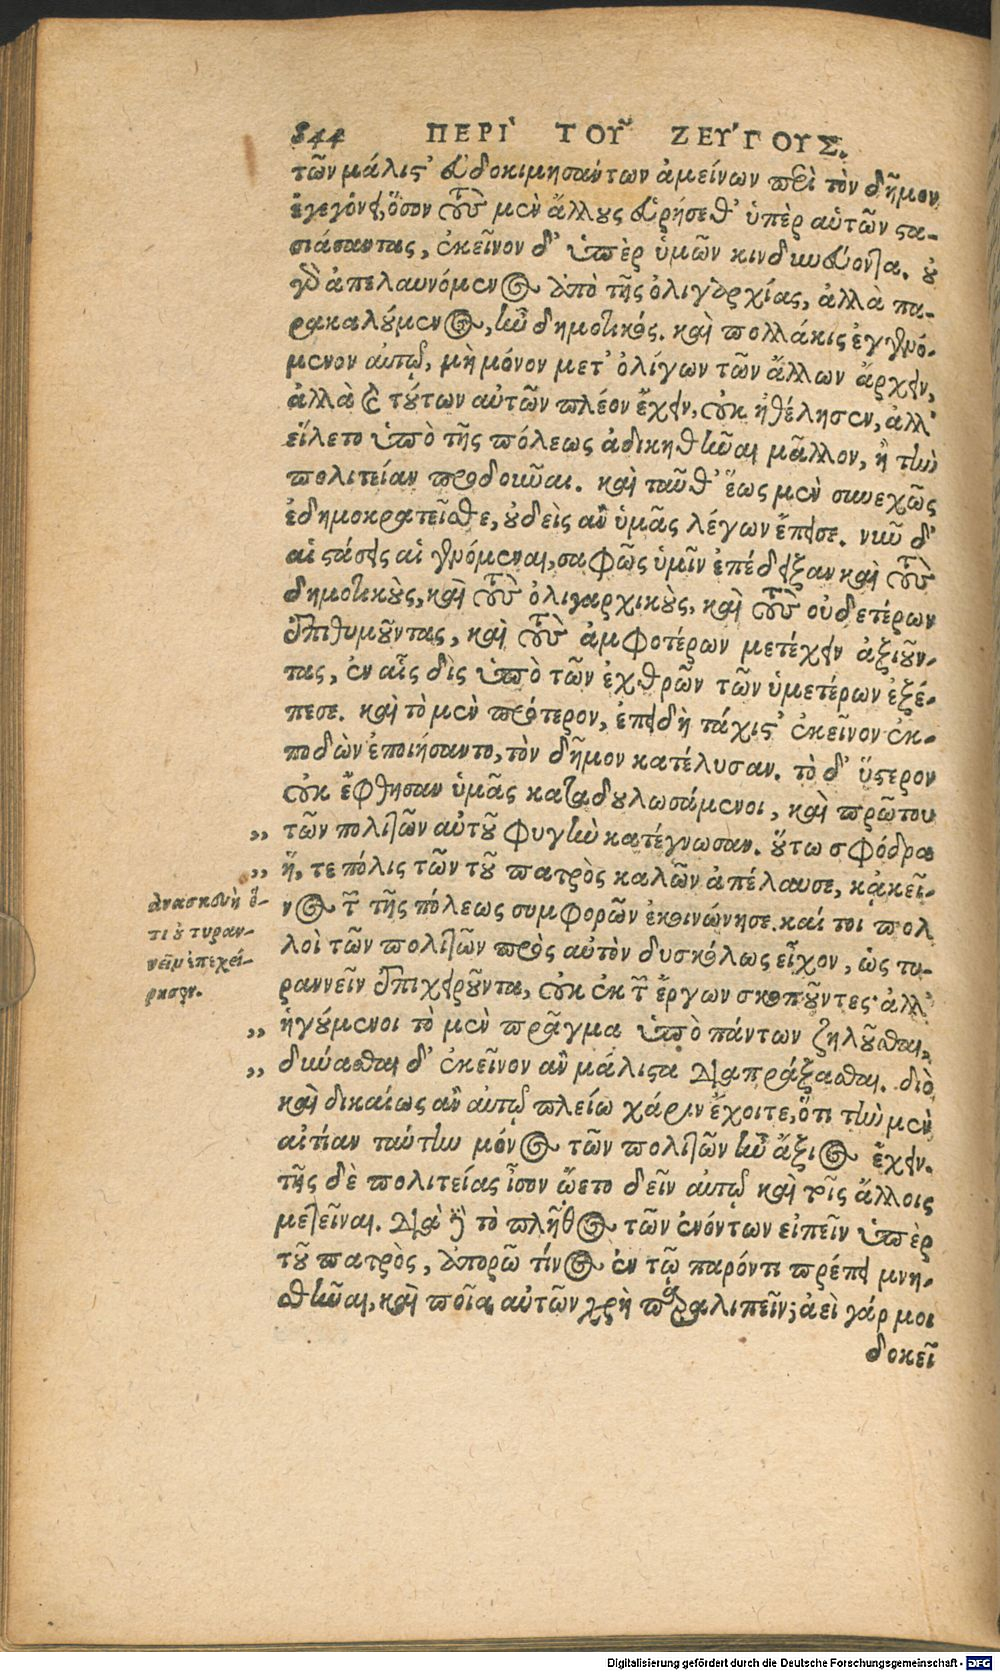 844 ΠΕΡΙ` ΤΟΥ͂ ΖΕΥ´ΓΟΥΣ.
τῶν μάλιστ' εὐδοκιμησάντων ἀμείνων περὶ τὸν δῆμον
ἐγεγόνει, ὅσον τοὺς μὲν ἄλλους εὑρήσεθ' ὑπὲρ αὑτῶν στα-
σιάσαντας, ἐκεῖνον δ' ὑπὲρ ὑμῶν κινδυνεύοντα. οὐ
γὰρ ἀπελαυνόμενος ἀπὸ τῆς ὀλιγαρχίας, ἀλλὰ πα-
ρακαλούμενος, ἦν δημοτικός. καὶ πολλάκις ἐγγενό-
μενον αὐτῷ, μὴ μόνον μετ' ὀλίγων τῶν ἄλλων ἄρχειν,
ἀλλὰ καὶ τούτων αὐτῶν πλέον ἔχειν, οὐκ ἠθέλησεν, ἀλλ'
εἵλετο ὑπὸ τῆς πόλεως ἀδικηθῆναι μᾶλλον, ἢ τὴν
πολιτείαν προδοῦναι. καὶ ταῦθ' ἕως μὲν συνεχῶς
ἐδημοκρατεῖσθε, οὐδεὶς ἂν ὑμᾶς λέγων ἔπεισε. νῦν δ'
αἱ στάσεις αἱ γενόμεναι, σαφῶς ὑμῖν ἐπέδειξαν καὶ τοὺς
δημοτικοὺς, καὶ τοὺς ὀλιγαρχικοὺς, καὶ τοὺς οὐδετέρων
ἐπιθυμοῦντας, καὶ τοὺς ἀμφοτέρων μετέχειν ἀξιοῦν-
τας, ἐν αἷς δὶς ὑπὸ τῶν ἐχθρῶν τῶν ὑμετέρων ἐξέ-
πεσε. καὶ τὸ μὲν πρότερον, ἐπειδὴ τάχιστ' ἐκεῖνον ἐκ-
ποδὼν ἐποιήσαντο, τὸν δῆμον κατέλυσαν. τὸ δ' ὕστερον
οὐκ ἔφθησαν ὑμᾶς καταδουλωσάμενοι, καὶ πρῶτου
,, τῶν πολιτῶν αὐτοῦ φυγὴν κατέγνωσαν. οὕτω σφόδρα
,, ἥ, τε πόλις τῶν τοῦ πατρὸς καλῶν ἀπέλαυσε, κἀκεῖ-
νος τῶν τῆς πόλεως συμφορῶν ἐκοινώνησε. καί τοι πολ
λοὶ τῶν πολιτῶν πρὸς αὐτὸν δυσκόλως εἶχον, ὡς τυ-
ραννεῖν ἐπιχειροῦντα, οὐκ ἐκ τῶν ἔργων σκοποῦντες· ἀλλ'
,, ἡγούμενοι τὸ μὲν πρᾶγμα ὑπὸ πάντων ζηλοῦσθαι,
,, δύνασθαι δ' ἐκεῖνον ἂν μάλιστα διαπράξασθαι. διὸ
καὶ δικαίως ἂν αὐτῷ πλείω χάριν ἔχοιτε, ὅτι τὴν μὲν
αἰτίαν ταύτην μόνος τῶν πολιτῶν ἦν ἄξιος ἔχειν.
τῆς δὲ πολιτείας ἴσον ᾤετο δεῖν αὐτῷ καὶ τοῖς ἄλλοις
μετεῖναι. διὰ δὲ τὸ πλῆθος τῶν ἐνόντων εἰπεῖν ὑπὲρ
τοῦ πατρὸς, ἀπορῶ τίνος ἐν τῷ παρόντι πρέπει μνη-
σθῆναι, καὶ ποῖα αὐτῶν χρὴ παραλιπεῖν; ἀεὶ γάρ μοι
δοκεῖ
ἀνασκευὴ ὅ-
τι οὐ τυραν-
νεῖν ἐπεχεί-
ρησεν.
Digitalisierung gefördert durch die Deutsche Forschungsgemeinschaft - DFG